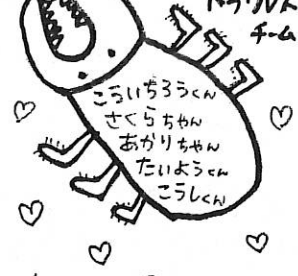 チーム
こういちろうくん
さくらちゃん
あかりちゃん
たいようくん
こうしくん